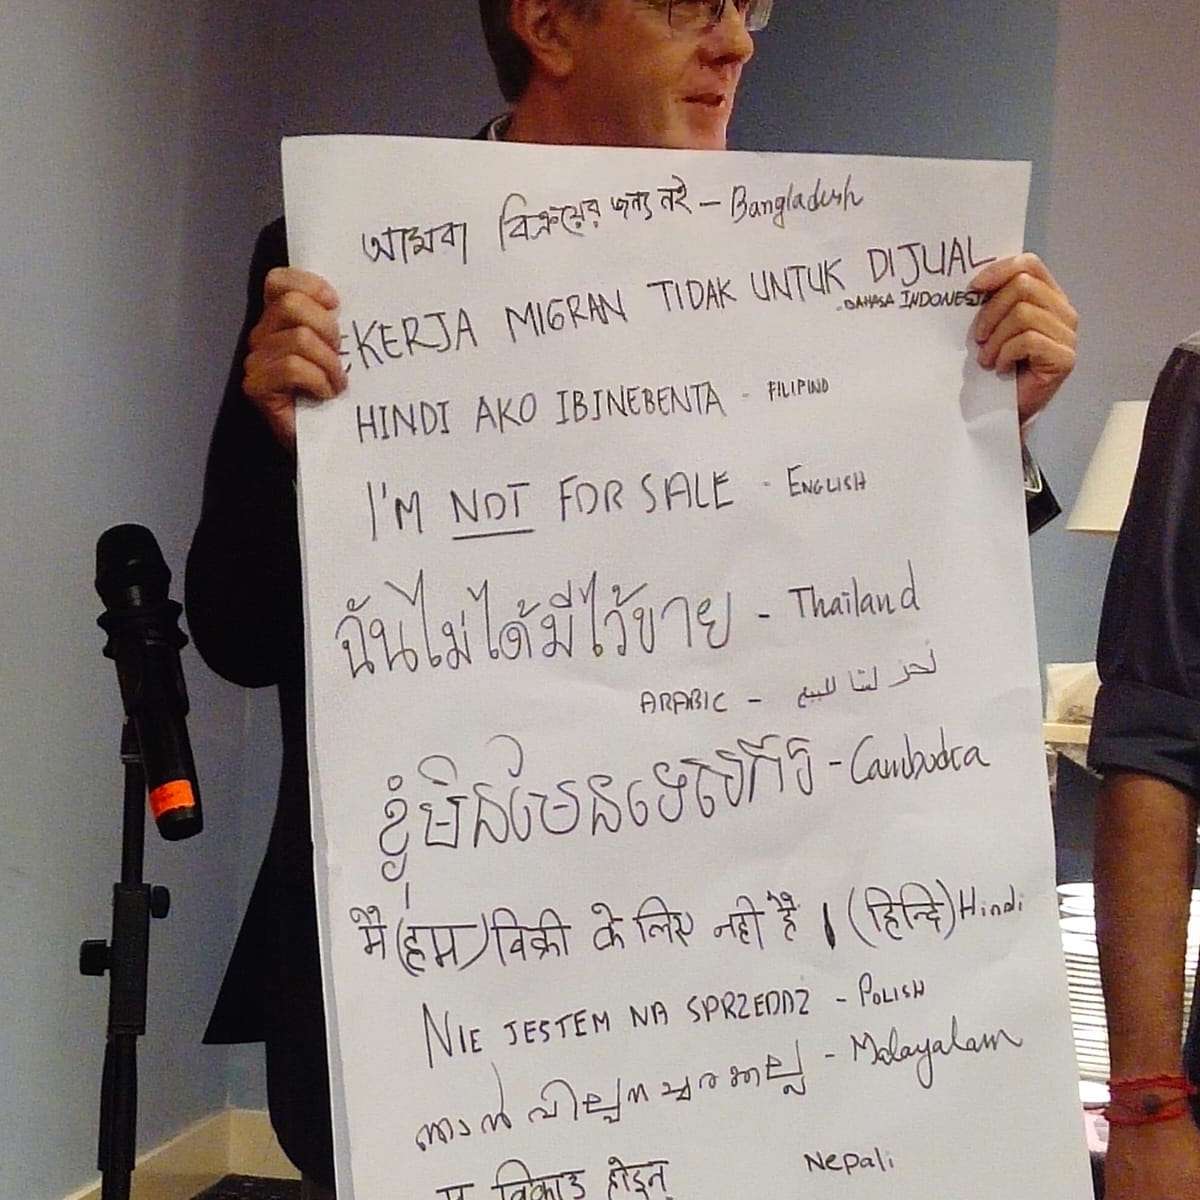 আমরা বিক্রয়ের জন্য নই – Bangladesh
EKERJA MIGRAN TIDAK UNTUK DIJUAL
BAHASA INDONESIA
HINDI AKO IBINEBENTA - FILIPINO
I'M NOT FOR SALE - ENGLISH
ฉันไม่ได้มีไว้ขาย - Thailand
ARABIC - نحن لسنا للبيع
ខ្ញុំមិនមែន - Cambodia
मैं (हम) विक्री के लिए नही है । (हिन्दि) Hindi
NIE JESTEM NA SPRZEDAŻ - POLISH
ഞാൻ - Malayalam
म विकाउ होइन् Nepali